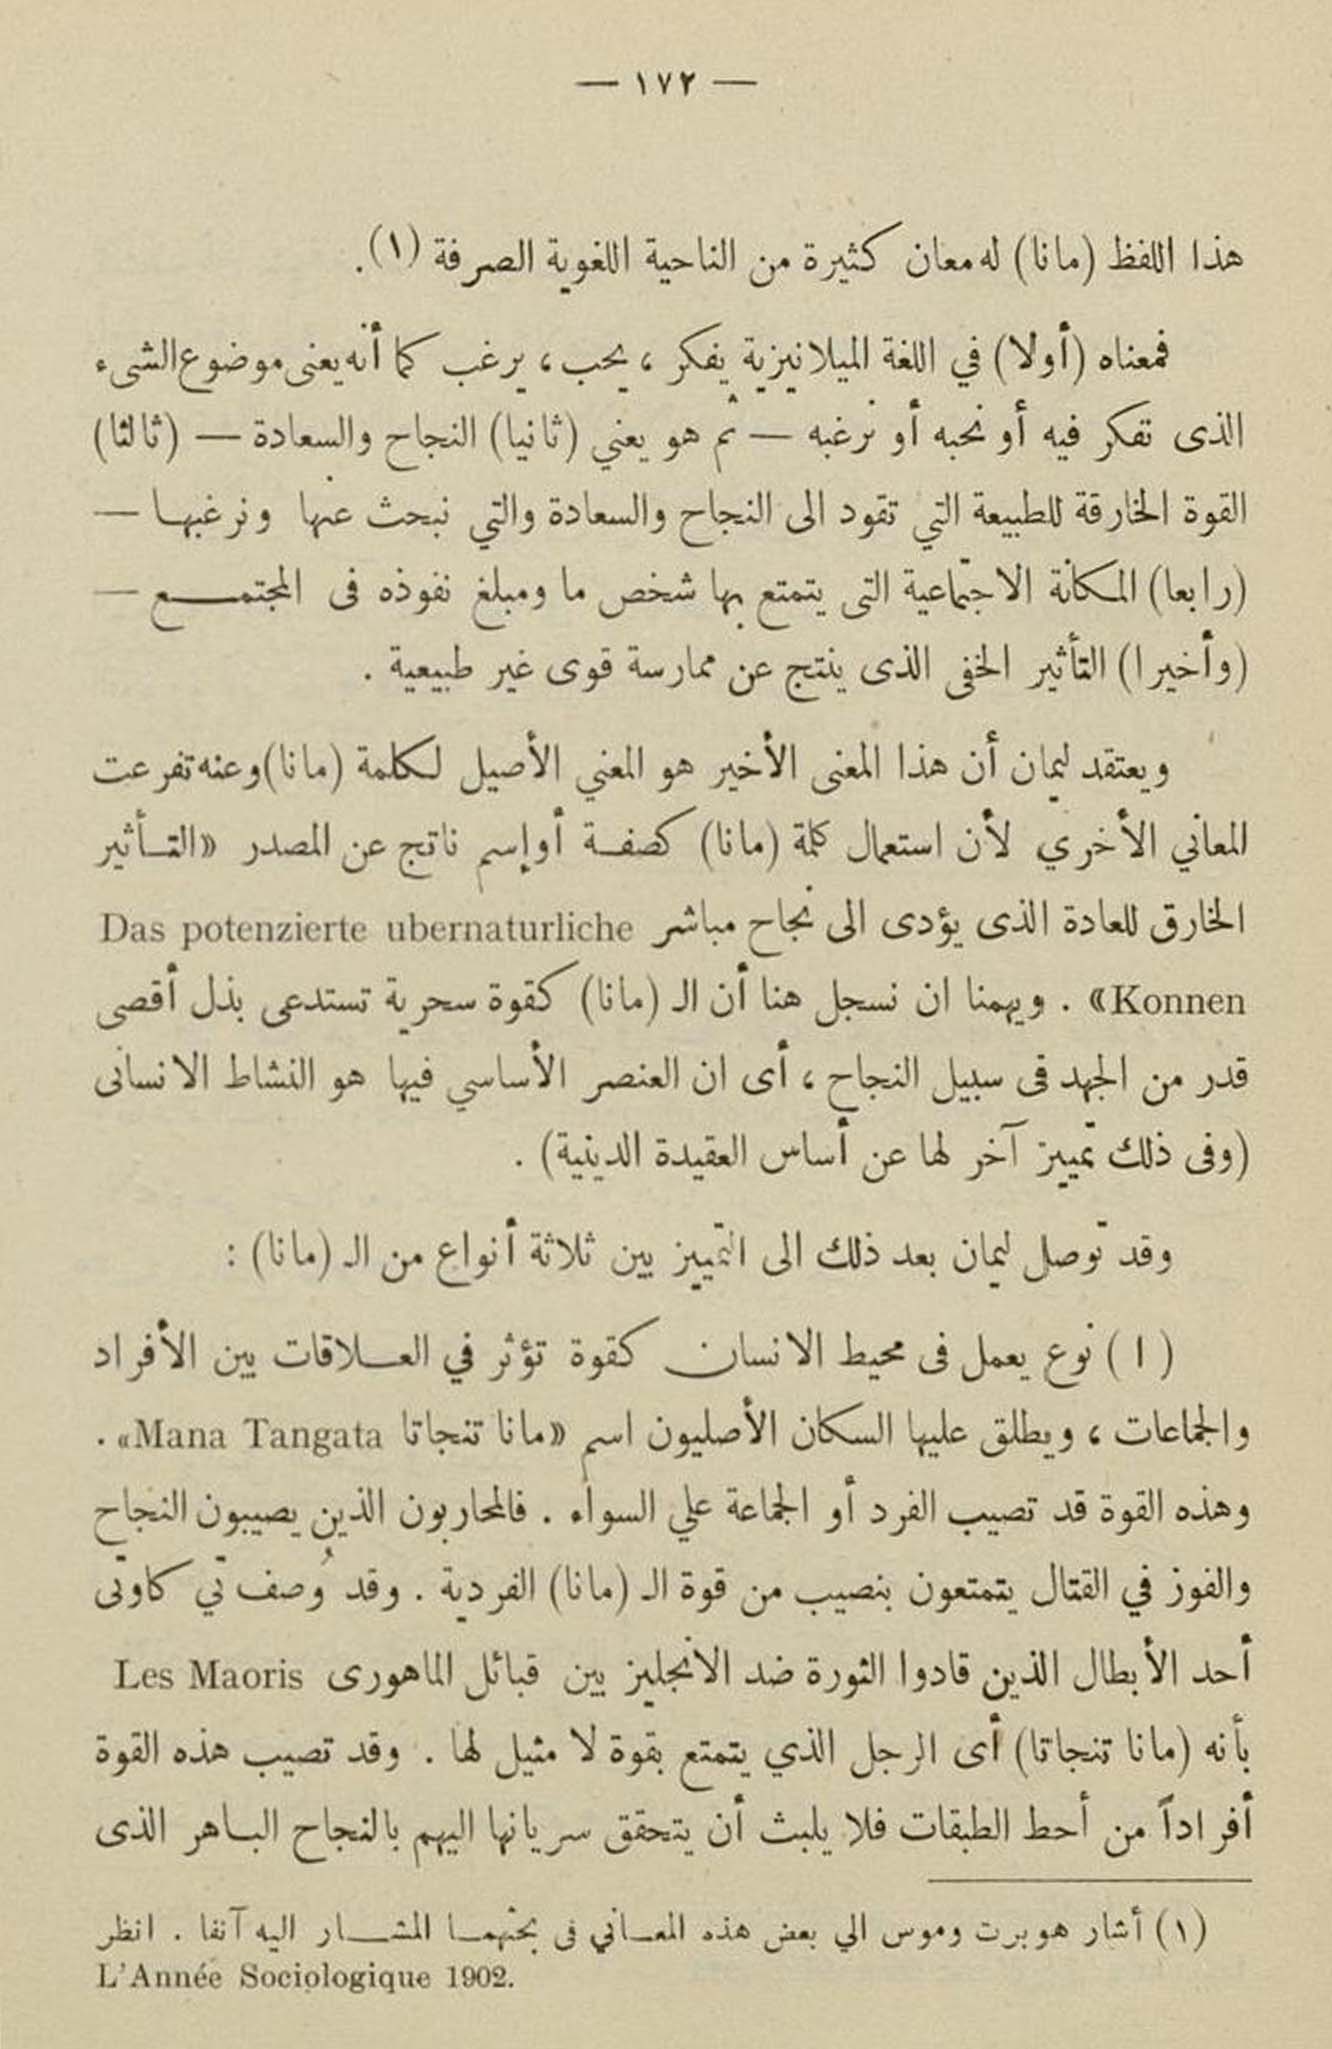 — ١٧٢ —
هذا اللفظ (مانا) له معان كثيرة من الناحية اللغوية الصرفة (١).
فمعناه (أولا) في اللغة الميلانيزية يفكر ، يحب ، يرغب كما أنه يعنى موضوع الشىء
الذى تفكر فيه أو نحبه أو نرغبه — ثم هو يعني (ثانيا) النجاح والسعادة — (ثالثا)
القوة الخارقة للطبيعة التي تقود الى النجاح والسعادة والتي نبحث عنها ونرغبها —
(رابعا) المكانة الاجتماعية التى يتمتع بها شخص ما ومبلغ نفوذه فى المجتمع —
(وأخيرا) التأثير الخفى الذى ينتج عن ممارسة قوى غير طبيعية .
ويعتقد ليمان أن هذا المعنى الأخير هو المعني الأصيل لكلمة (مانا) وعنه تفرعت
المعاني الأخري لأن استعمال كلمة (مانا) كصفة أو إسم ناتج عن المصدر «التأثير
الخارق للعادة الذى يؤدى الى نجاح مباشر Das potenzierte ubernaturliche
Konnen» . ويهمنا ان نسجل هنا أن الـ (مانا) كقوة سحرية تستدعى بذل أقصى
قدر من الجهد فى سبيل النجاح ، أى ان العنصر الأساسي فيها هو النشاط الانسانى
(وفى ذلك تمييز آخر لها عن أساس العقيدة الدينية) .
وقد توصل ليمان بعد ذلك الى التمييز بين ثلاثة أنواع من الـ (مانا) :
(ا) نوع يعمل فى محيط الانسان كقوة تؤثر في العلاقات بين الأفراد
والجماعات ، ويطلق عليها السكان الأصليون اسم «مانا تنجاتا Mana Tangata» .
وهذه القوة قد تصيب الفرد أو الجماعة علي السواء . فالمحاربون الذين يصيبون النجاح
والفوز في القتال يتمتعون بنصيب من قوة الـ (مانا) الفردية . وقد وُصف تي كاوتى
أحد الأبطال الذين قادوا الثورة ضد الانجليز بين قبائل الماهورى Les Maoris
بأنه (مانا تنجاتا) أى الرجل الذي يتمتع بقوة لا مثيل لها . وقد تصيب هذه القوة
أفراداً من أحط الطبقات فلا يلبث أن يتحقق سريانها اليهم بالنجاح الباهر الذى
(١) أشار هوبرت وموس الي بعض هذه المعاني فى بحثهما المشار اليه آنفا . انظر
L'Année Sociologique 1902.